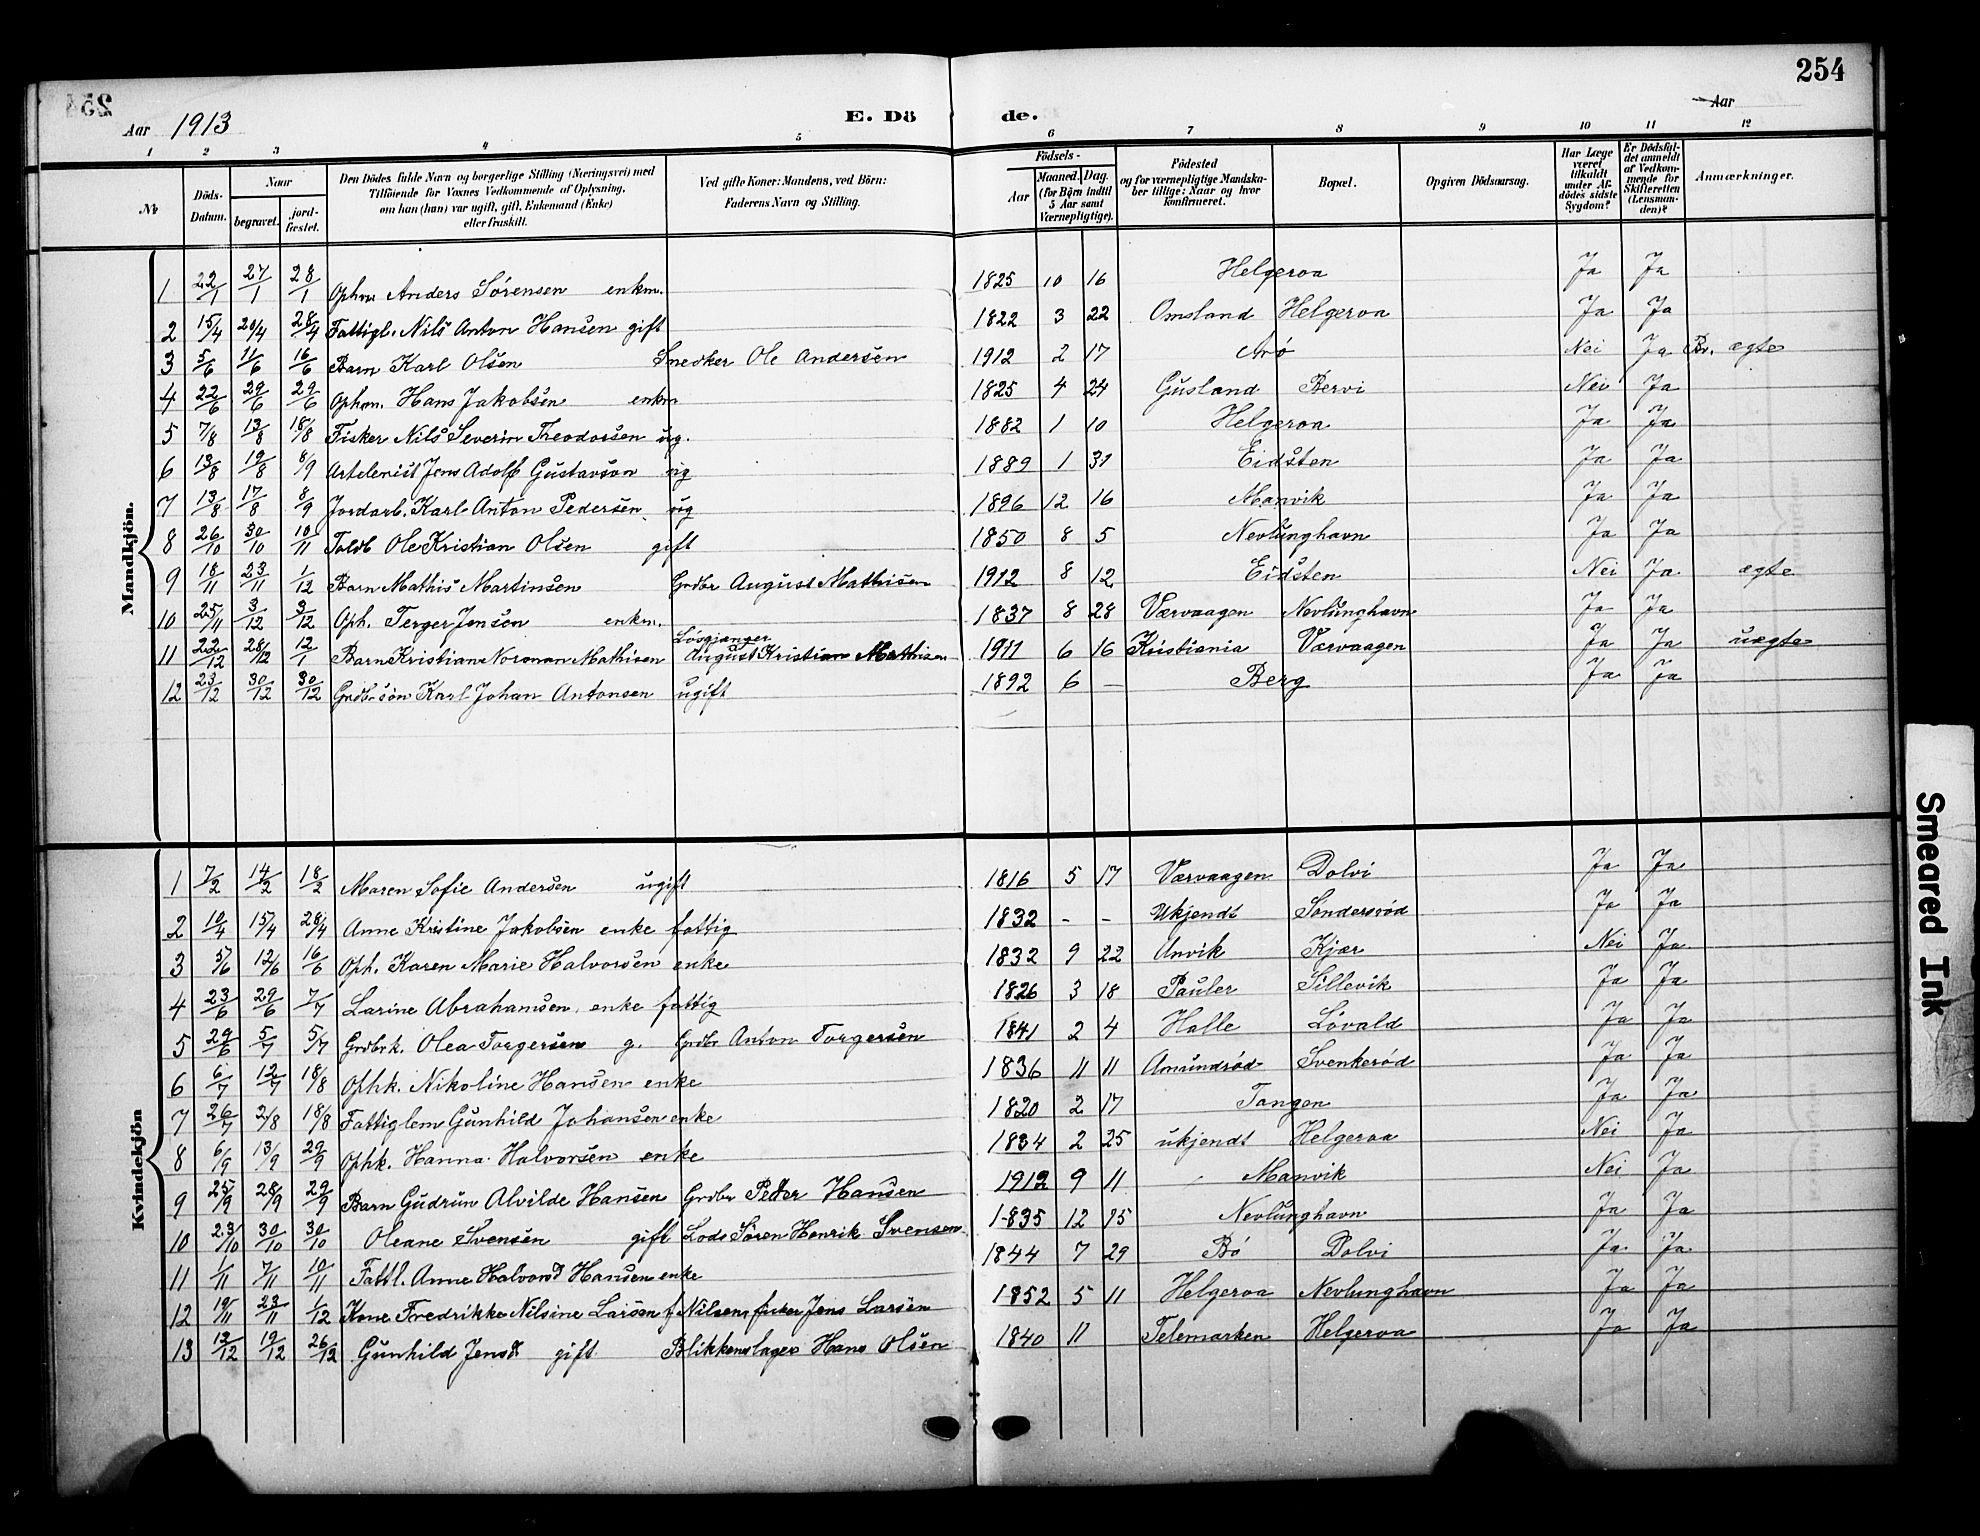 254
Aar 1913 E. Dö de. Aar
1 2 3 4 5 6 7 8 9 10 11 12
№ Döds-Datum. Naar begravet. jord-fæstet. Den Dödes fulde Navn og borgerlige Stilling (Næringsvei) med Tilföiende for Voxnes Vedkommende af Oplysning, om han (hun) var ugift, gift, Enkemand (Enke) eller fraskilt. Ved gifte Koner: Mandens, ved Börn: Faderens Navn og Stilling. Födsels- Aar Maaned. Dag. (for Børn indtil 5 Aar samt Værnepligtige). Födested og for værnepligtige Mandskaber tillige: Naar og hvor konfirmeret. Bopæl. Opgiven Dödsaarsag. Har Læge været tilkaldt under Afdödes sidste Sygdom? Er Dödsfaldet anmeldt af Vedkommende for Skifteretten (Lensmanden)? Anmærkninger.
Mandkjön.
1 22/1 27/1 28/1 Ophm Anders Sörensen enkm. 1825 10 16 Helgeroa Ja Ja
2 15/4 20/4 28/4 Fattigl. Nils Anton Hansen gift 1822 3 22 Omsland Helgeroa Ja Ja
3 5/6 11/6 16/6 Barn Karl Olsen Snedker Ole Andersen 1912 2 17 Arö Nei Ja ægte
4 22/6 29/6 29/6 Ophm. Hans Jakobsen enkm 1825 4 24 Gusland Bervi Nei Ja
5 7/8 13/8 18/8 Fisker Nils Severin Theodorsen ug. 1882 1 10 Helgeroa Ja Ja
6 13/8 19/8 8/9 Artelerist Jens Adolf Gustavson ug 1889 1 31 Eidsten Ja Ja
7 13/8 17/8 8/9 Jordarb. Karl Anton Pedersen ug 1896 12 16 Manvik Ja Ja
8 26/10 30/10 10/11 Toldb Ole Kristian Olsen gift 1850 8 5 Nevlunghavn Ja Ja
9 18/11 23/11 1/12 Barn Mathis Martinsen Grdbr August Mathisen 1912 8 12 Eidsten Nei Ja ægte
10 25/11 3/12 3/12 Oph. Terger Jensen enkm. 1837 8 28 Værvaagen Nevlunghavn Ja Ja
11 22/12 28/12 12/1 Barn Kristian Norman Mathisen Lösgjænger August Kristian Mathisen 1911 6 16 Kristiania Værvaagen Ja Ja uægte
12 23/12 30/12 30/12 Grdbr sön Karl Johan Antonsen ugift 1892 6 - Berg Ja Ja
Kvindekjön
1 7/2 14/2 18/2 Maren Sofie Andersen ugift 1816 5 17 Værvaagen Dolvi Ja Ja
2 10/4 15/4 28/4 Anne Kristine Jakobsen enke fattig 1832 - - Ukjendt Söndersröd Ja Ja
3 5/6 12/6 16/6 Oph. Karen Marie Halvorsen enke 1832 9 22 Anvik Kjær Nei Ja
4 23/6 29/6 7/7 Larine Abrahamsen, enke fattig 1826 3 18 Pauler Sillevik Ja Ja
5 29/6 5/7 5/7 Grdbrk. Olea Torgersen g. Grdbr Anton Torgersen 1841 2 4 Halle Lövald Ja Ja
6 6/7 12/7 18/8 Ophk. Nikoline Hansen enke 1836 11 11 Amundröd Svenkeröd Ja Ja
7 26/7 2/8 18/8 Fattiglem Gunhild Johansen enke 1820 2 17 Tangen Ja Ja
8 6/9 13/9 29/9 Ophk. Hanna Halvorsen enke 1834 2 25 ukjendt Helgeroa Nei Ja
9 25/9 28/9 29/9 Barn Gudrun Alvilde Hansen Grdbr Peder Hansen 1912 9 11 Manvik Nei Ja
10 23/10 30/10 30/10 Oleane Svensen gift Lods Sören Henrik Svensen 1835 12 15 Nevlunghavn Ja Ja
11 1/11 7/11 10/11 Fattl. Anne Halvorsd Hansen enke 1844 7 29 Bö Dolvi Ja Ja
12 19/11 23/11 1/12 Kone Fredrikke Nilsine Larsen f. Nilsen, fisker Jens Larsen 1852 5 11 Helgeroa Nevlunghavn Ja Ja
13 13/12 19/12 26/12 Gunhild Jensd. gift Blikkenslager Hans Olsen 1840 11 Telemarken Helgeroa Ja Ja
Smeared Ink